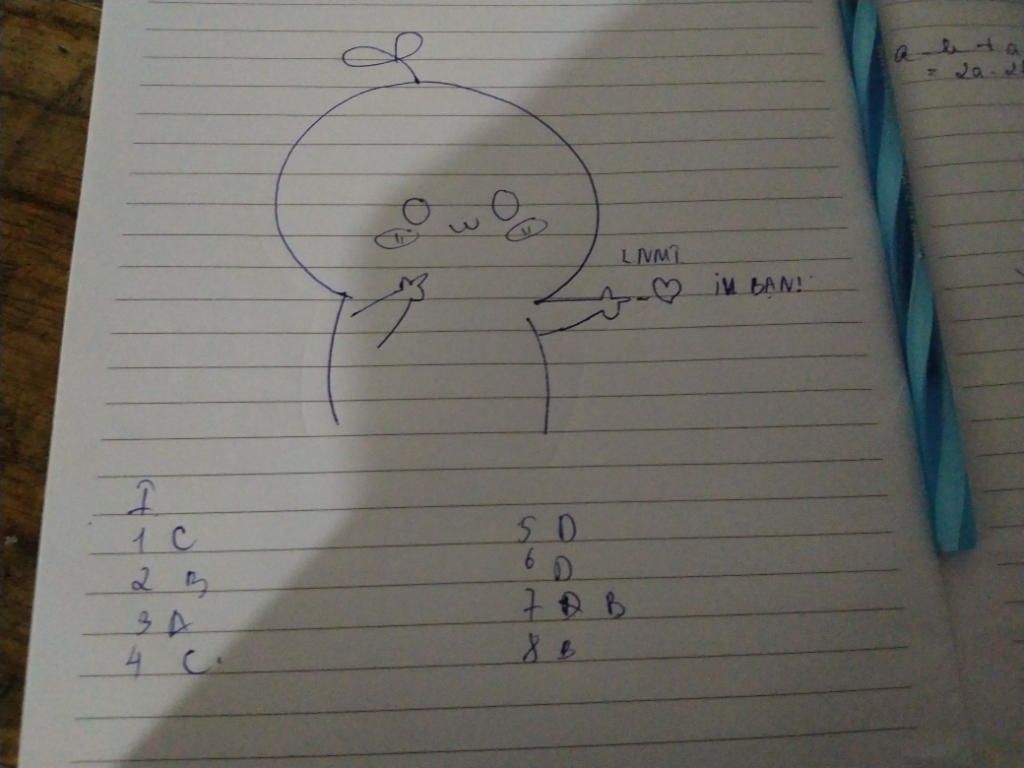 a - b + a
= 2a - 2b
LNMT
iu BẠN!
I
1 C
2 B
3 A
4 C.
5 D
6 D
7 B
8 B